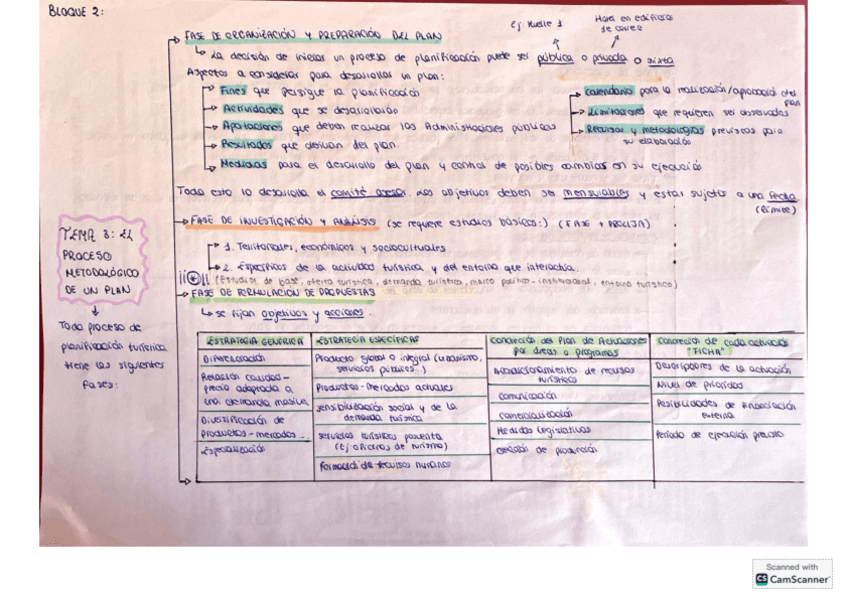 BLOQUE 2:
Ej: Muelle 1
Hotel en edificios de correo
FASE DE ORGANIZACIÓN Y PREPARACIÓN DEL PLAN
La decisión de iniciar un proceso de planificación puede ser pública o privada o mixta
Aspectos a considerar para desarrollar un plan:
Fines que persigue la planificación
Actividades que se desarrollarán
Aportaciones que deben realizar las Administraciones públicas
Resultados que derivan del plan
Medidas para el desarrollo del plan y control de posibles cambios en su ejecución
Calendario para la realización/aprobación del plan
Limitaciones que requieren ser observadas
Recursos y metodologías previstas para su elaboración
Todo esto lo desarrolla el comité asesor. Los objetivos deben ser mensurables y estar sujetos a una fecha
(límite)
FASE DE INVESTIGACIÓN Y ANÁLISIS (se requiere estudios básicos:) (FASE + PROLIJA)
1. Territoriales, económicos y socioculturales.
2. Específicos de la actividad turística y del entorno que interactúa.
(Estudios de base, oferta turística, demanda turística, marco político-institucional, entorno turístico)
FASE DE FORMULACIÓN DE PROPUESTAS
se fijan objetivos y acciones.
TEMA 3: EL
PROCESO
METODOLÓGICO
DE UN PLAN
Todo proceso de
planificación turística
tiene las siguientes
fases:
ESTRATEGIA GENÉRICA
Diferenciación
Relación calidad-
precio adaptada a
una demanda masiva
Diversificación de
productos-mercados
Especialización
ESTRATEGIA ESPECÍFICAS
Producto global o integral (urbanismo,
servicios públicos..)
Productos-mercados actuales
Sensibilización social y de la
demanda turística
Servicios turísticos
(Ej oficinas de turismo)
Formación de recursos humanos
Concreción del Plan de Actuaciones
por áreas o programas
Acondicionamiento de recursos
turísticos
Comunicación
Comercialización
Medidas legislativas
Creación de producción
Concreción de cada actuación
"FICHA"
Descriptores de la actuación
Nivel de prioridad
Posibilidades de financiación
externa
Período de ejecución previsto
Scanned with
CS CamScanner